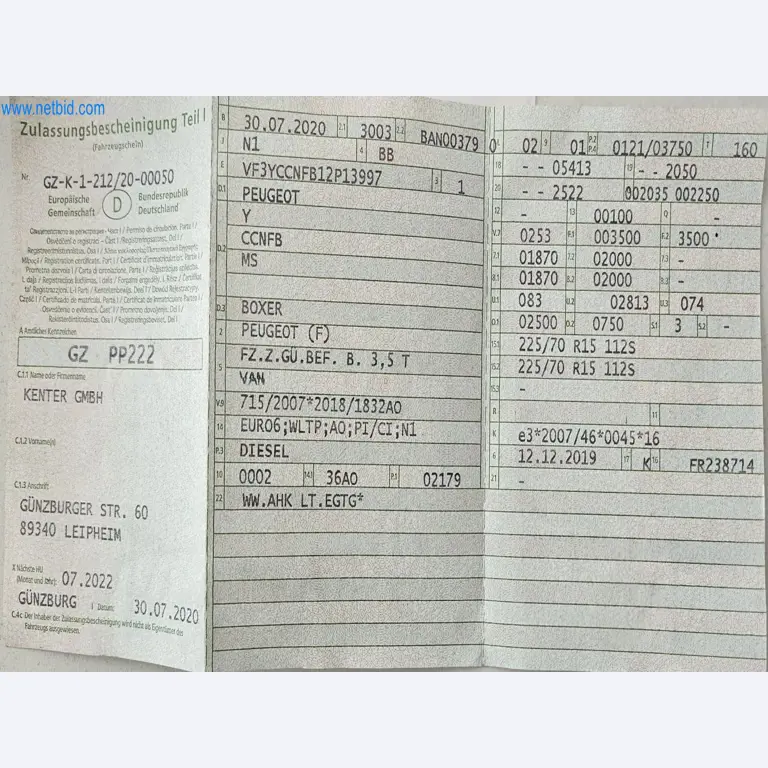 www.netbid.com
Zulassungsbescheinigung Teil I
(Fahrzeugschein)
Nr. GZ-K-1-212/20-00050
Europäische Gemeinschaft
D
Bundesrepublik Deutschland
A Amtliches Kennzeichen
GZ PP222
C.1.1 Name oder Firmenname
KENTER GMBH
C.1.2 Vorname(n)
C.1.3 Anschrift
GÜNZBURGER STR. 60
89340 LEIPHEIM
X Nächste HU
(Monat und Jahr) 07.2022
GÜNZBURG I Datum: 30.07.2020
C.4c Der Inhaber der Zulassungsbescheinigung wird nicht als Eigentümer des
Fahrzeugs ausgewiesen.
B 30.07.2020 2.1 3003 2.2 BAN00379 0
J N1 4 BB
E VF3YCCNFB12P13997 3 1
D.1 PEUGEOT
Y
D.2 CCNFB
MS
D.3 BOXER
2 PEUGEOT (F)
5 FZ.Z.GÜ.BEF. B. 3,5 T
VAN
V.9 715/2007*2018/1832AO
14 EURO6;WLTP;AO;PI/CI;N1
P.3 DIESEL
10 0002 14.1 36AO P.1 02179
22 WW.AHK LT.EGTG*
02 9 01 P.2 P.4 0121/03750 T 160
18 - - 05413 19 - - 2050
20 - - 2522 002035 002250
12 - 13 00100 Q -
V.7 0253 F.1 003500 F.2 3500 *
7.1 01870 7.2 02000 7.3 -
8.1 01870 8.2 02000 -
U.1 083 U.2 02813 U.3 074
O.1 02500 O.2 0750 S.1 3 S.2 -
15.1 225/70 R15 112S
15.2 225/70 R15 112S
15.3 -
R 11
K e3*2007/46*0045*16
6 12.12.2019 17 K 16 FR238714
21 -